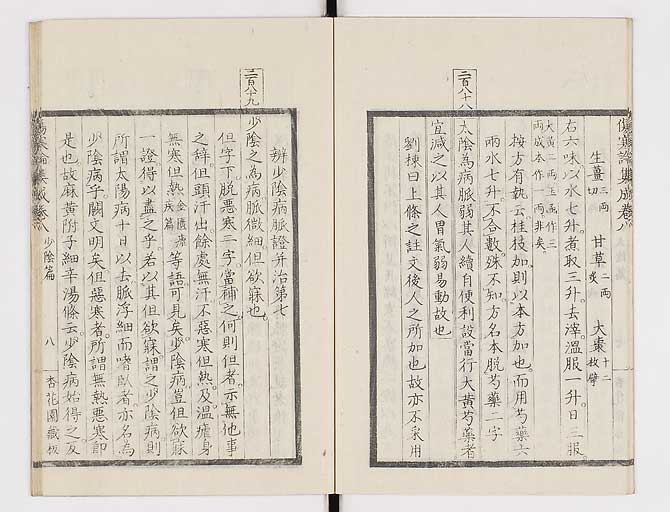 傷寒論集成卷八
生薑三兩切 甘草二兩炙 大棗十二枚擘
右六味以水七升煮取三升去滓溫服一升日三服
大黃二兩玉函作三
兩成本作一兩非矣
按方有執云桂枝加則以本方加也而用芍藥六
兩水七升不合數殊不知方名本脫芍藥二字
二百八十八
太陰為病脈弱其人續自便利設當行大黃芍藥者
宜減之以其人胃氣弱易動故也
劉棟曰上條之註文後人之所加也故亦不采用
辨少陰病脈證并治第七
二百八十九
少陰之為病脈微細但欲寐也
但字下脫惡寒二字當補之何則但者示無他事
之辭但頭汗出餘處無汗不惡寒但熱及溫瘧身
無寒但熱金匱瘧疾篇等語可見矣少陰病豈但欲寐
一證得以盡之乎若以其但欲寐謂之少陰病則
所謂太陽病十日以去脈浮細而嗜臥者亦名為
少陰病乎闕文明矣但惡寒者所謂無熱惡寒即
是也故麻黃附子細辛湯條云少陰病始得之反
傷寒論集成卷八 少陰篇 八 杏花園藏板